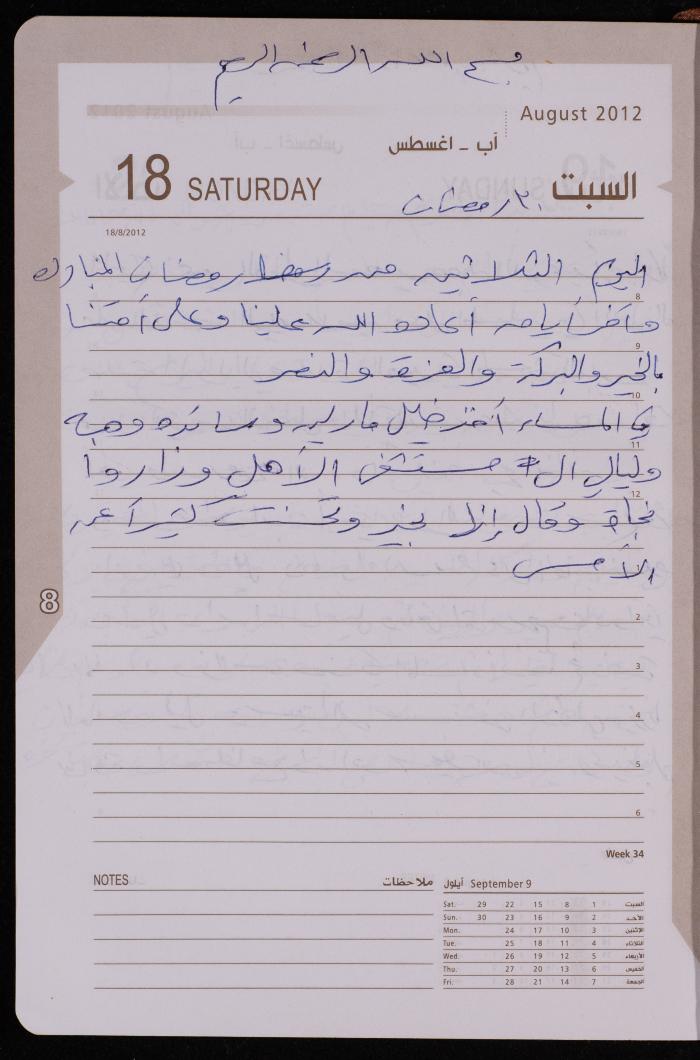 بسم الله الرحمن الرحيم
August 2012
آب - اغسطس
18 SATURDAY
السبت
٣٠ رمضان
18/8/2012
اليوم الثلاثين من رمضان المبارك
8
وآخر أيامه أعاده الله علينا وعلى أمتنا
9
بالخير والبركة والعزة والنصر
10
في المساء أخذ خليل مارلين وسائده وهبه
11
وليالي ال مستشفى الأهلي وزاروا
12
نجاة وقال إنها بخير وتحسنت كثيراً عن
الأمس
8
2
3
4
5
6
Week 34
NOTES ملاحظات
September 9 أيلول
Sat. 29 22 15 8 1 السبت
Sun. 30 23 16 9 2 الأحد
Mon. 24 17 10 3 الإثنين
Tue. 25 18 11 4 الثلاثاء
Wed. 26 19 12 5 الأربعاء
Thu. 27 20 13 6 الخميس
Fri. 28 21 14 7 الجمعة